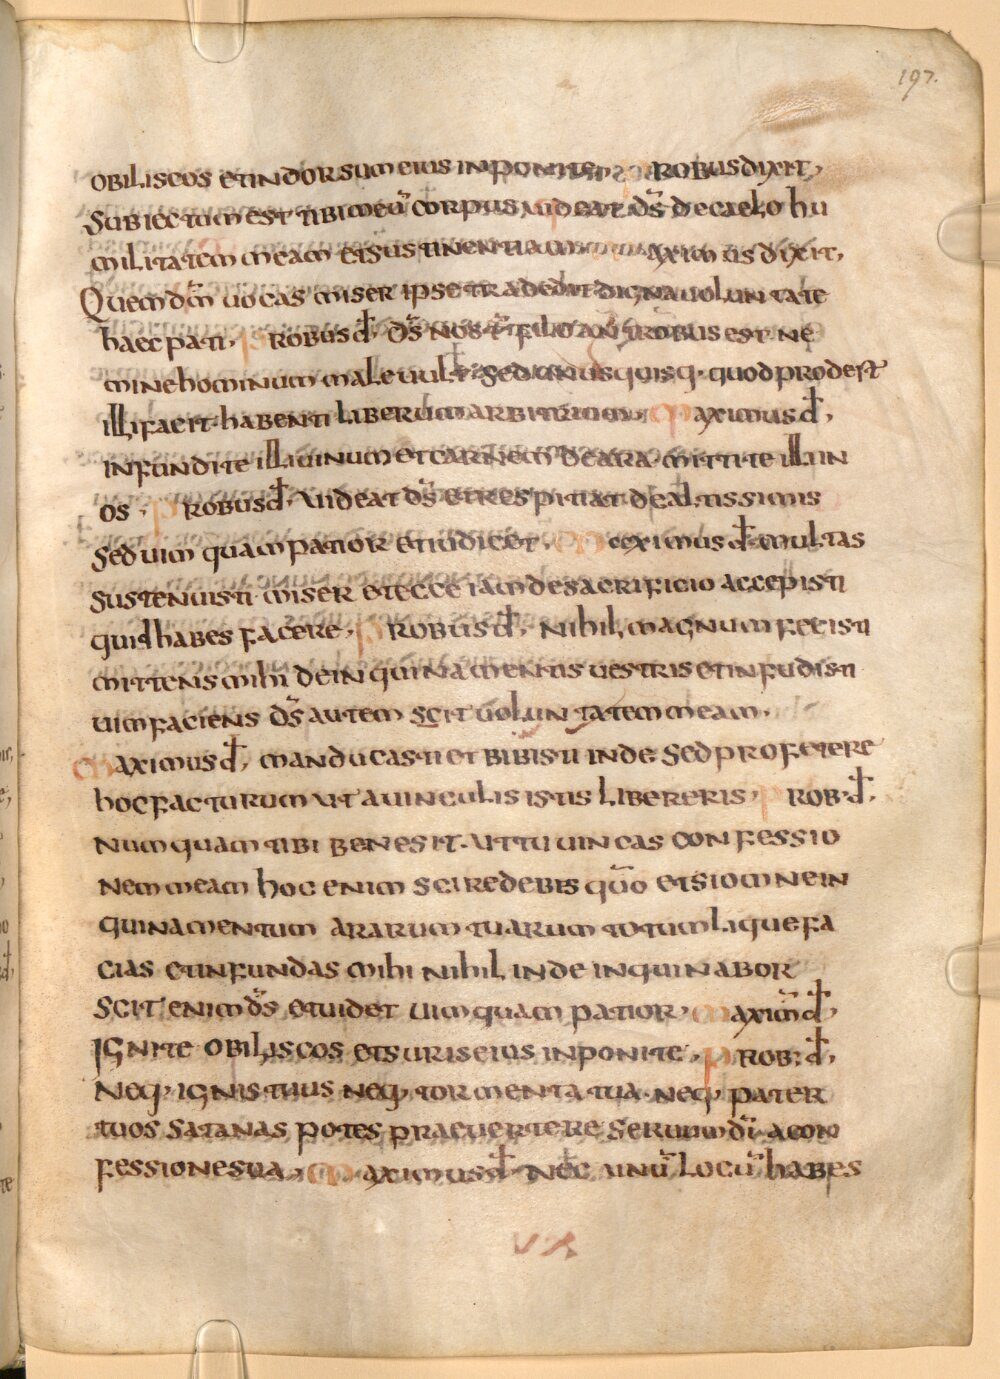 197.
obiliscos et in dorsum eius inponite, Robus dixit,
Subiectum est tibi meū corpus uideat d̄s de caelo hu
militatem meam et sustinentiam Maximus dixit,
Quem dm̄ uocas miser ipse tradedit digna uoluntate
haec pati, Probus đ, d̄s nos
mine hominum male uult sed unusquisq· quod prodest
illi facit habenti liberum arbitrium, Maximus đ,
infundite illi uinum et carnem de ara mittite illi in
os, Probus đ, uideat d̄s et respiciat de altissimis
sed uim quam patior et iudicet, Maximus đ multas
sustenuisti miser et ecce iam de sacrificio accepisti
quid habes facere, Probus đ, Nihil magnum fecisti
mittens mihi de inquinamentis uestris et infudisti
uim faciens d̄s autem scit uoluntatem meam,
Maximus đ, manducasti et bibisti inde sed profetere
hoc facturum ut a uinculis istis libereris, Prob· đ,
Numquam tibi bene sit ut tu uincas confessio
nem meam hoc enim scire debis quō etsi omne in
quinamentum ararum tuarum totum liquefa
cias et infundas mihi nihil inde inquinabor
scit enim d̄s et uidet uim quam patior, Maxim̄ đ,
Ignite obiliscos et suris eius inponite, Prob· đ,
Neq, ignis tuus neq, tormenta tua neq, pater
tuos satanas potes praeuertere seruum dī a con
fessione sua, Maximus đ Nec unū locū habes